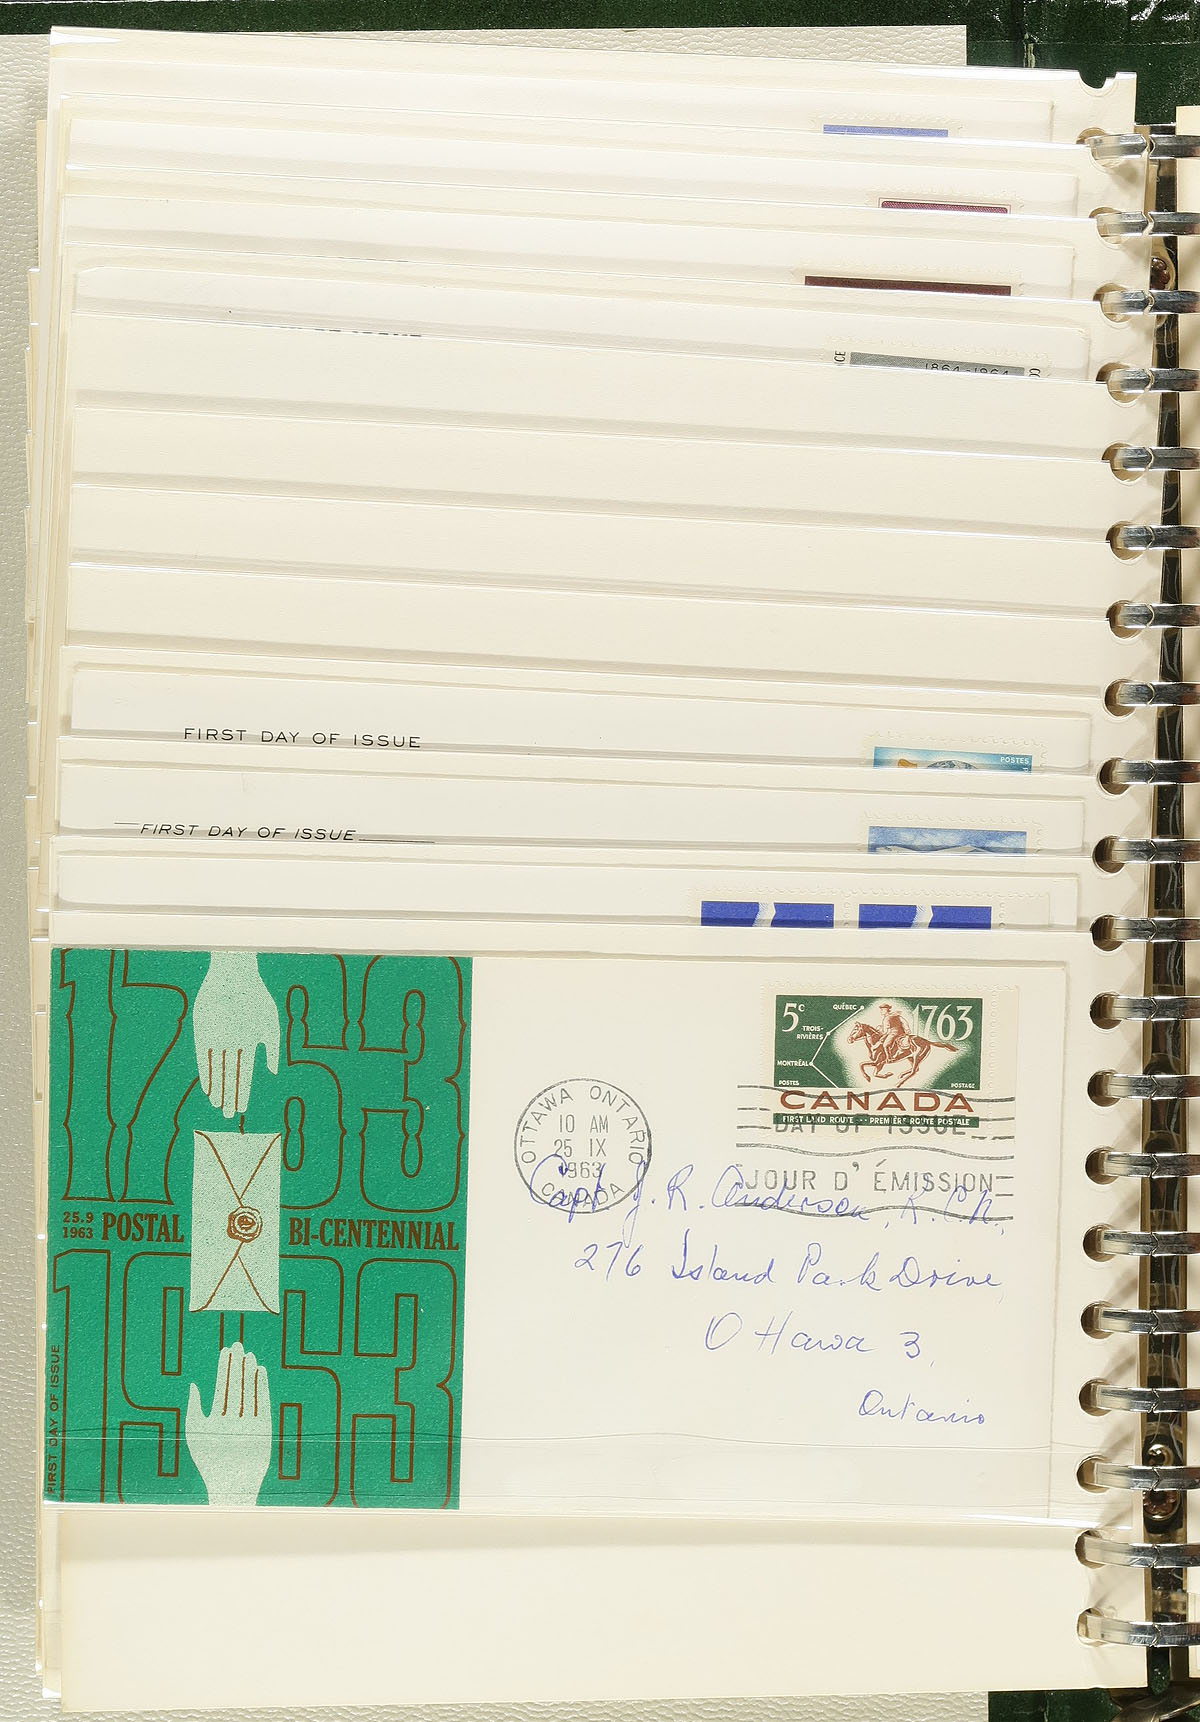 CE
1864-1964
FIRST DAY OF ISSUE
POSTES
FIRST DAY OF ISSUE
1763
25.9
1963
POSTAL BI-CENTENNIAL
1963
FIRST DAY OF ISSUE
5c
QUÉBEC
TROIS-
RIVIÈRES
MONTRÉAL
1763
POSTES
POSTAGE
CANADA
FIRST LAND ROUTE - PREMIÈRE ROUTE POSTALE
OTTAWA ONTARIO
10 AM
25 IX
1963
CANADA
DAY OF ISSUE
JOUR D' ÉMISSION
Capt J. R. Anderson, R.C.N.,
276 Island Park Drive
Ottawa 3,
Ontario